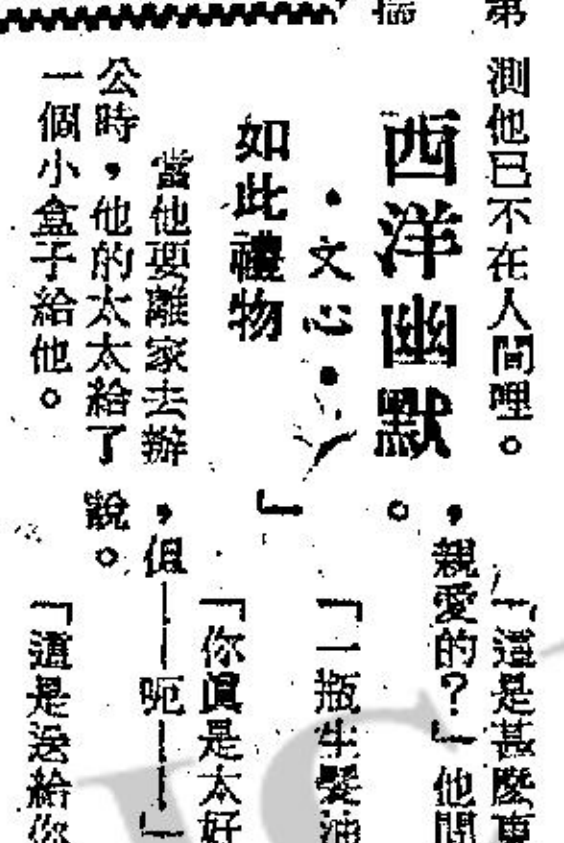 測他已不在人間哩。
西洋幽默
•文心•
如此禮物
當他要離家去辦
公時，他的太太給了
一個小盒子給他。
「這是甚麼東
，親愛的？」他問
。
「一瓶生髮油
」
「你眞是太好
，但——呃——」
說。
「這是送給你